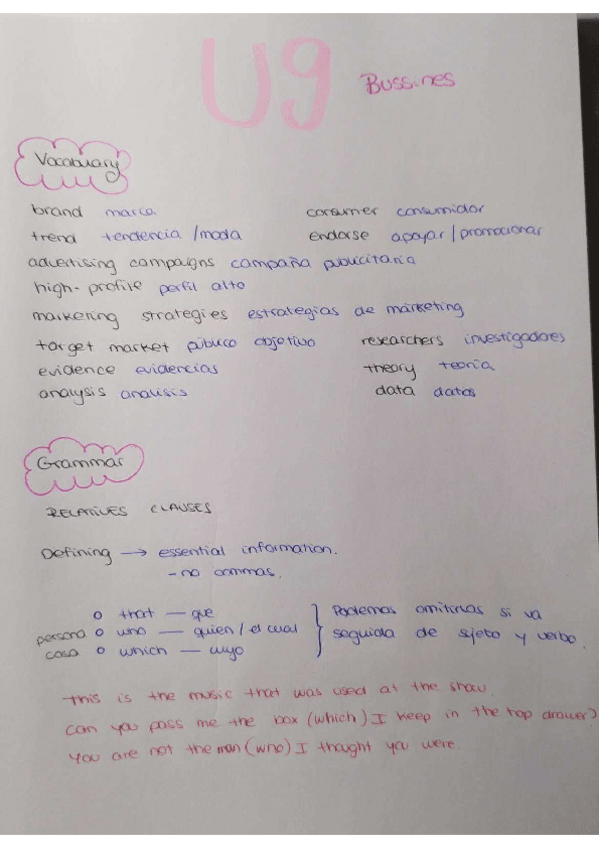 U9 Bussines
Vocabuary
brand marca consumer consumidor
trend tendencia / moda endorse apoyar / promocionar
advertising campaigns campaña publicitaria
high-profile perfil alto
marketing strategies estrategias de márketing
target market público objetivo researchers investigadores
evidence evidencias theory teoría
analysis analisis data datos
Grammar
RELATIVES CLAUSES
Defining → essential information.
- no commas.
o that — que } Podemos omitirlas si va
persona o who — quien / el cual seguida de sjeto y verbo.
cosa o which — cuyo
This is the music that was used at the show.
Can you pass me the box (which) I keep in the top drawer?
You are not the man (who) I thought you were.